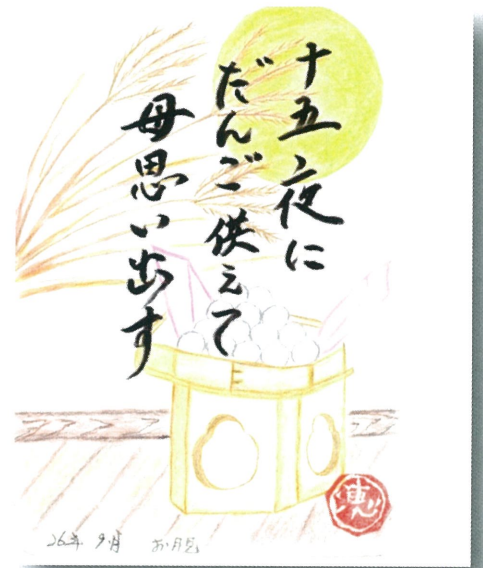 十五夜に
だんご供えて
母思い出す
26年 9月 お月見